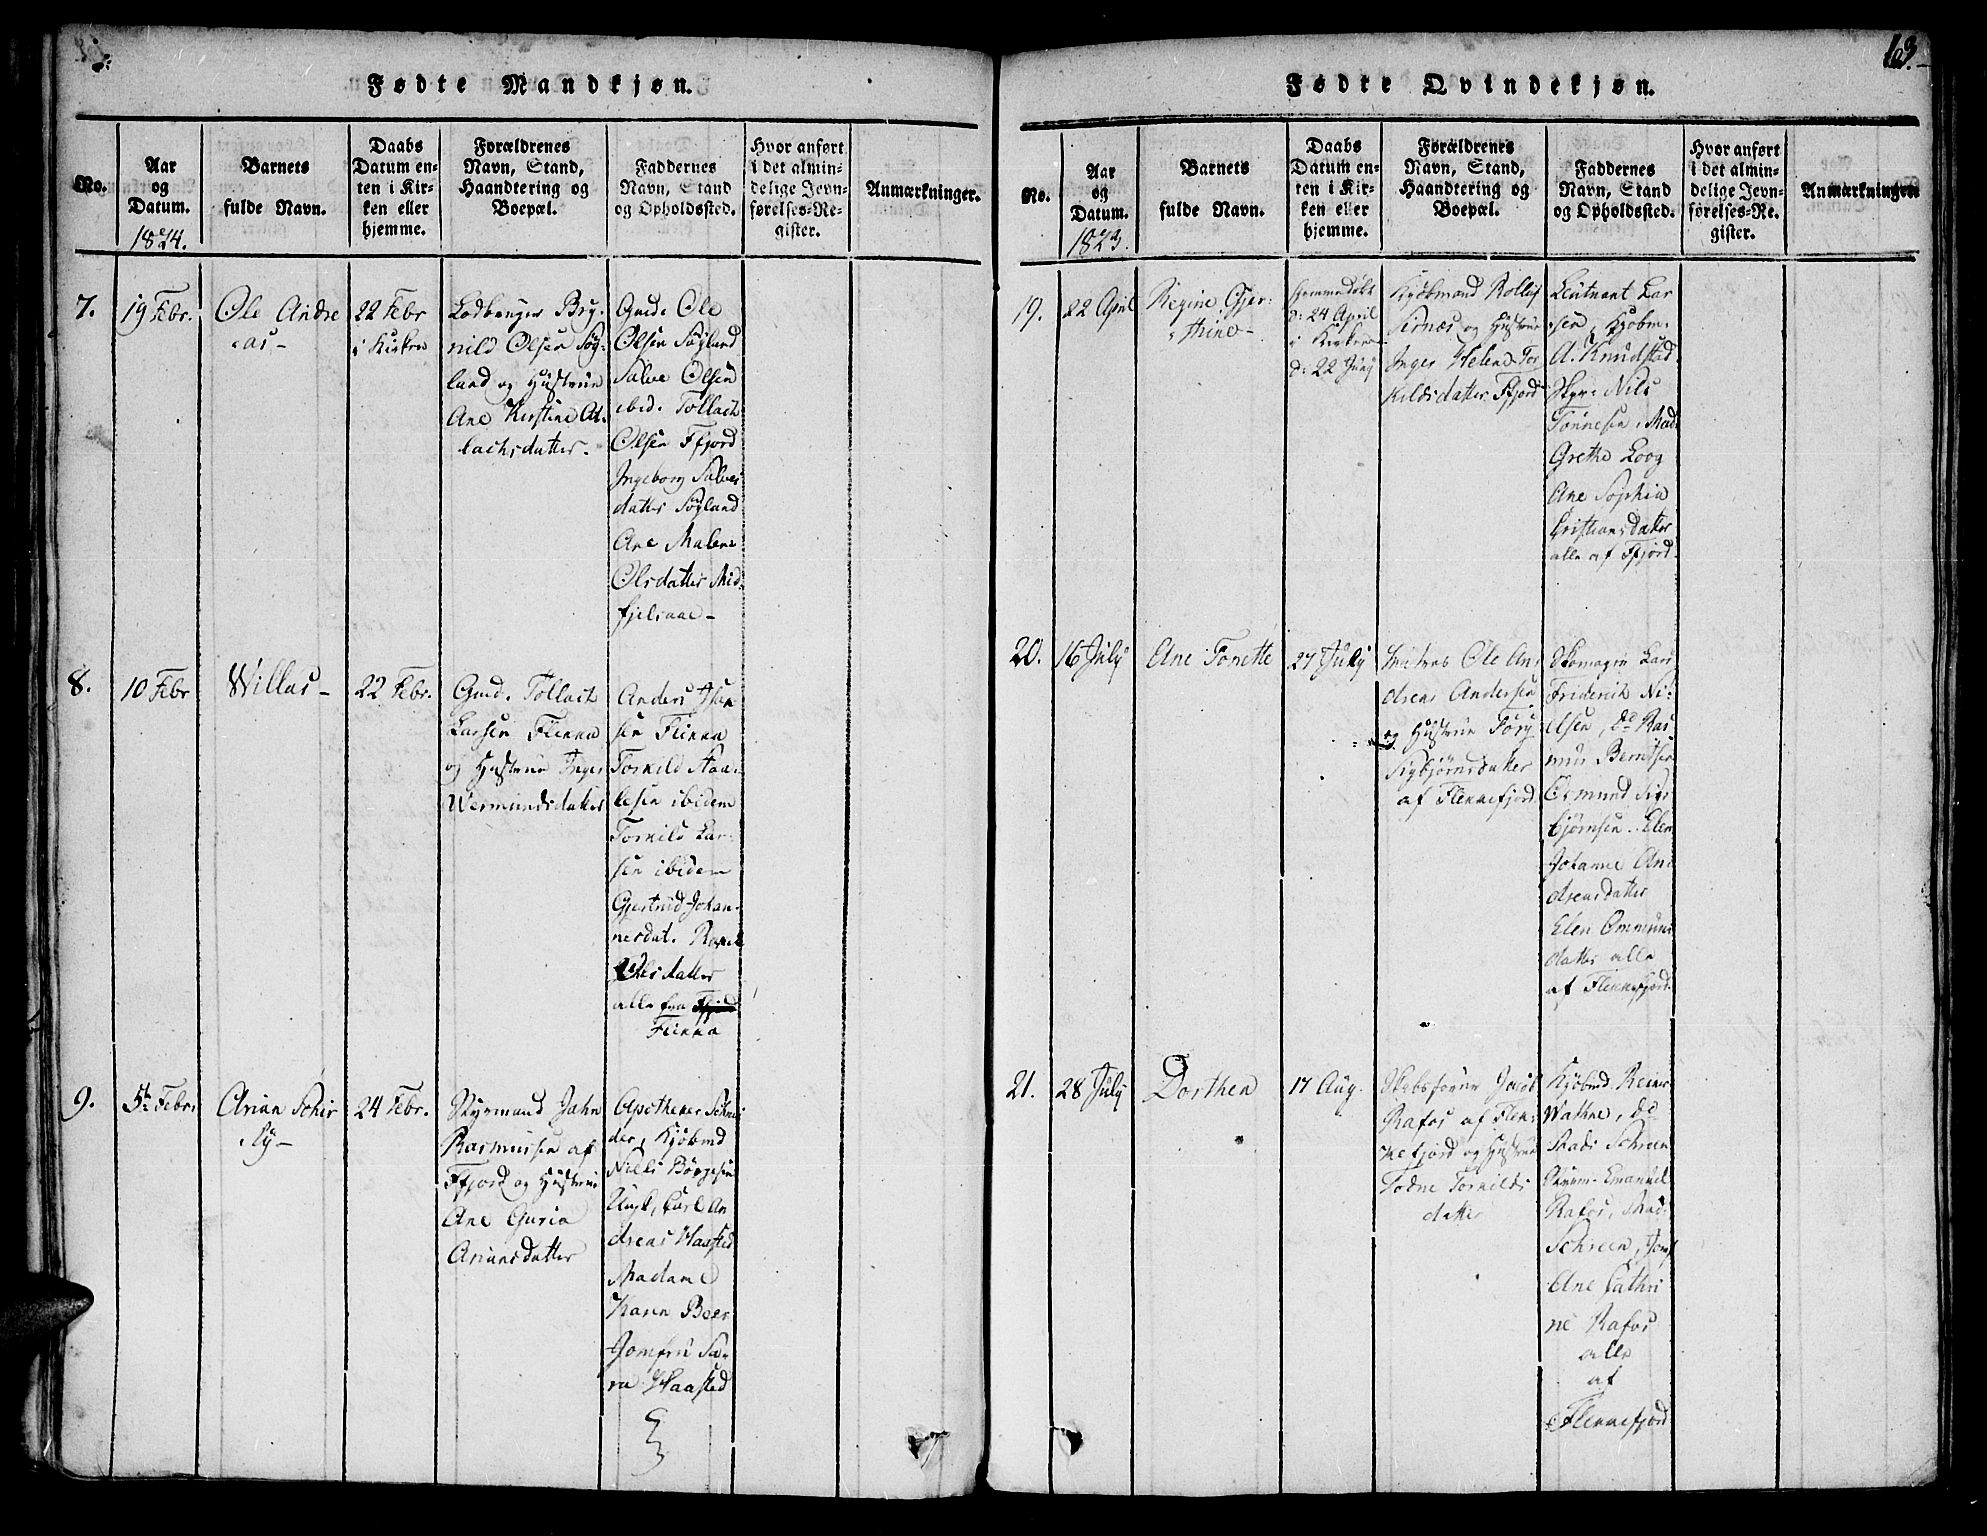 Fødte Mandkjøn.
No.
Aar
og
Datum.
1824.
Barnets
fulde Navn.
Daabs
Datum en-
ten i Kir-
ken eller
hjemme.
Forældrenes
Navn, Stand,
Haandtering og
Boepæl.
Faddernes
Navn, Stand
og Opholdssted.
Hvor anført
i det almin-
delige Jevn-
førelses-Re-
gister.
Anmærkninger.
7.
19 Febr.
Ole Andre
as-
22 Febr
i Kirken
Olsen Søg-
land og Hustrue
Ane Kirstine At-
lachsdatter-
Gmd. Ole
Olsen Søgland
Salve Olsen
ibid. Tollach
Olsen Ffjord
Ingeborg Salves
datter Søgland
Ane Malene
Olsdatter Mid-
fjelsaae-
8.
10 Febr
Willas-
22 Febr.
Gmd. Tollach
Larsen Flikka
og Hustrue Inger
Wermundsdatter
Anders
sen Flikka
Torkild Staa-
lesen ibidem
Torkild Lar-
sen ibidem
Gjertrud Johan-
nesdat.
datter
alle fra
Flikka
9.
5te Febr.
Arian Schir
24 Febr.
Styrmand Jahn
Rasmussen af
Ffjord og Hustrue
Ane Guria
Ariansdatter
Apotheker Schnei
der, Kjøbmd
Niels Børgesen
Carl An
dreas Waasted
Madame
Karen Beer
Jomfru Sa-
ra Waasted
Fødte Qvindekjøn.
163.
No.
Aar
og
Datum.
1823.
Barnets
fulde Navn.
Daabs
Datum en-
ten i Kir-
ken eller
hjemme.
Forældrenes
Navn, Stand,
Haandtering og
Boepæl.
Faddernes
Navn, Stand
og Opholdssted.
Hvor anført
i det almin-
delige Jevn-
førelses-Re-
gister.
Anmærkninger
19.
22 April
Regine Gjer-
thine-
Hjemmedøbt
d: 24 April
i Kirken
d: 22 Juny
Kjøbmand Rollef
Sirnæs og Hustrue
Inger Helene Tor
kildsdatter Ffjord
Leutnant Lar
sen, Kjøbm.
A. Knudstad
Styr. Nils
Tønnesen, Mad.
Grethe Loog
Ane Sophia
Cristiansdatter
alle af Ffjord-
20.
16 July
Ane Tonette
27 July
Ole An
dreas Andersen
og Hustrue Tory
Sigbjørnsdatter
af Flekkefjord
Skomager Lars
Friderich Ni-
elsen, Do Ras
mus Berntsen
Ormund Sig-
bjørnsen. Elen
Johanne An
dreasdatter
Elen Ommund
datter alle
af Flekkefjord.
21.
28 July
Dorthea
17 Aug.
Jacob
Rafos af Flek-
kefjord og Hustrue
Todne Torkilds
datter
Kjøbmd. Reiner
Wathne, do
Mads Schreen
Emanuel
Rafos, Mad.
Schreen, Jomf
Ane Cathri
ne Rafos
alle
af
Flekkefjord